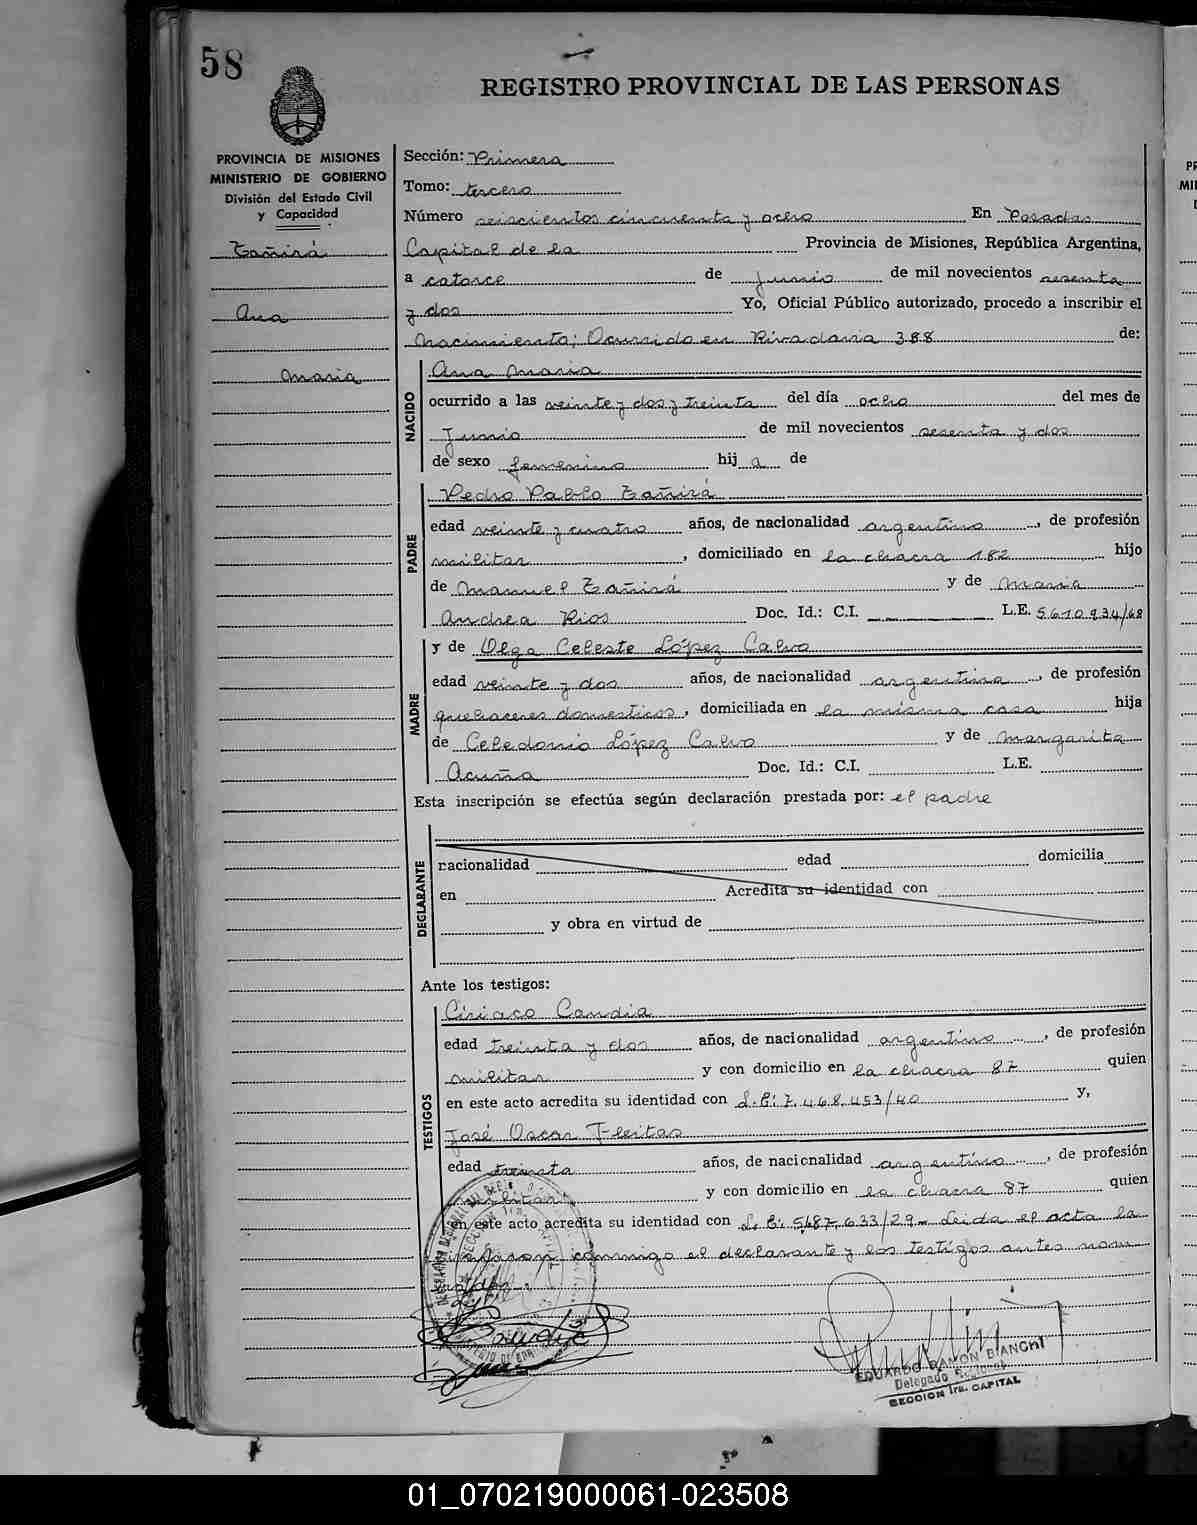 58
REGISTRO PROVINCIAL DE LAS PERSONAS
PROVINCIA DE MISIONES
MINISTERIO DE GOBIERNO
División del Estado Civil
y Capacidad
Zañirá
Ana
Maria
Sección: Primera
Tomo: tercero
Número seiscientos cincuenta y ocho En Posadas
Capital de la Provincia de Misiones, República Argentina,
a catorce de Junio de mil novecientos sesenta
y dos Yo, Oficial Público autorizado, procedo a inscribir el
Nacimiento; Ocurrido en Rivadavia 388 de:
NACIDO
Ana Maria
ocurrido a las veinte y dos y treinta del día ocho del mes de
Junio de mil novecientos sesenta y dos
de sexo femenino hij a de
PADRE
Pedro Pablo Zañirá
edad veinte y cuatro años, de nacionalidad argentino, de profesión
militar, domiciliado en la chacra 182 hijo
de Manuel Zañirá y de Maria
Andrea Rios Doc. Id.: C.I. L.E. 5610934/68
MADRE
y de Olga Celeste López Calvo
edad veinte y dos años, de nacionalidad argentina, de profesión
quehaceres domesticos, domiciliada en la misma casa hija
de Celedonio López Calvo y de Margarita
Acuña Doc. Id.: C.I. L.E.
Esta inscripción se efectúa según declaración prestada por: el padre
DECLARANTE
nacionalidad edad domicilia
en Acredita su identidad con
y obra en virtud de
Ante los testigos:
TESTIGOS
Ciriaco Candia
edad treinta y dos años, de nacionalidad argentino, de profesión
militar y con domicilio en la chacra 87 quien
en este acto acredita su identidad con L.E: 7.468.453/40 y,
José Oscar Fleitas
edad treinta años, de nacionalidad argentino, de profesión
militar y con domicilio en la chacra 87 quien
en este acto acredita su identidad con L.E: 5487.633/29- Leida el acta la
firman conmigo el declarante y los testigos antes nom
EDUARDO RAMON BIANCHI
Delegado Regional
SECCION 1ra. CAPITAL
01_070219000061-023508